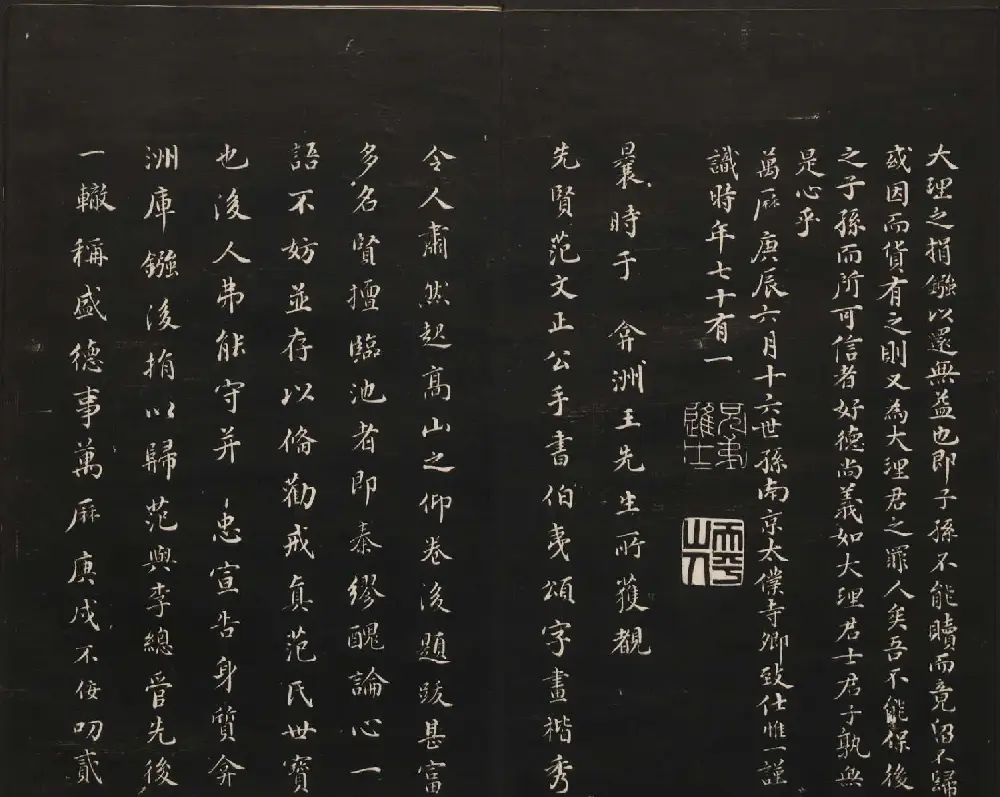 大理之捐鏹以還無益也即子孫不能贖而竟留不歸
或因而貨有之則又為大理君之罪人矣吾不能保後
之子孫而所可信者好德尚義如大理君士君子孰無
是心乎
萬曆庚辰六月十六世孫南京太僕寺卿致仕惟一謹
識時年七十有一
曩時于 弇洲王先生所獲覩
先賢范文正公手書伯夷頌字畫楷秀
令人肅然起高山之仰卷後題跋甚富
多名賢擅臨池者即秦繆醜論心一
語不妨並存以備勸戒真范氏世寶
也後人弗能守并 忠宣告身質弇
洲庫鏹後捐以歸范與李總管先後
一轍稱盛德事萬曆庚戌不佞叨貳